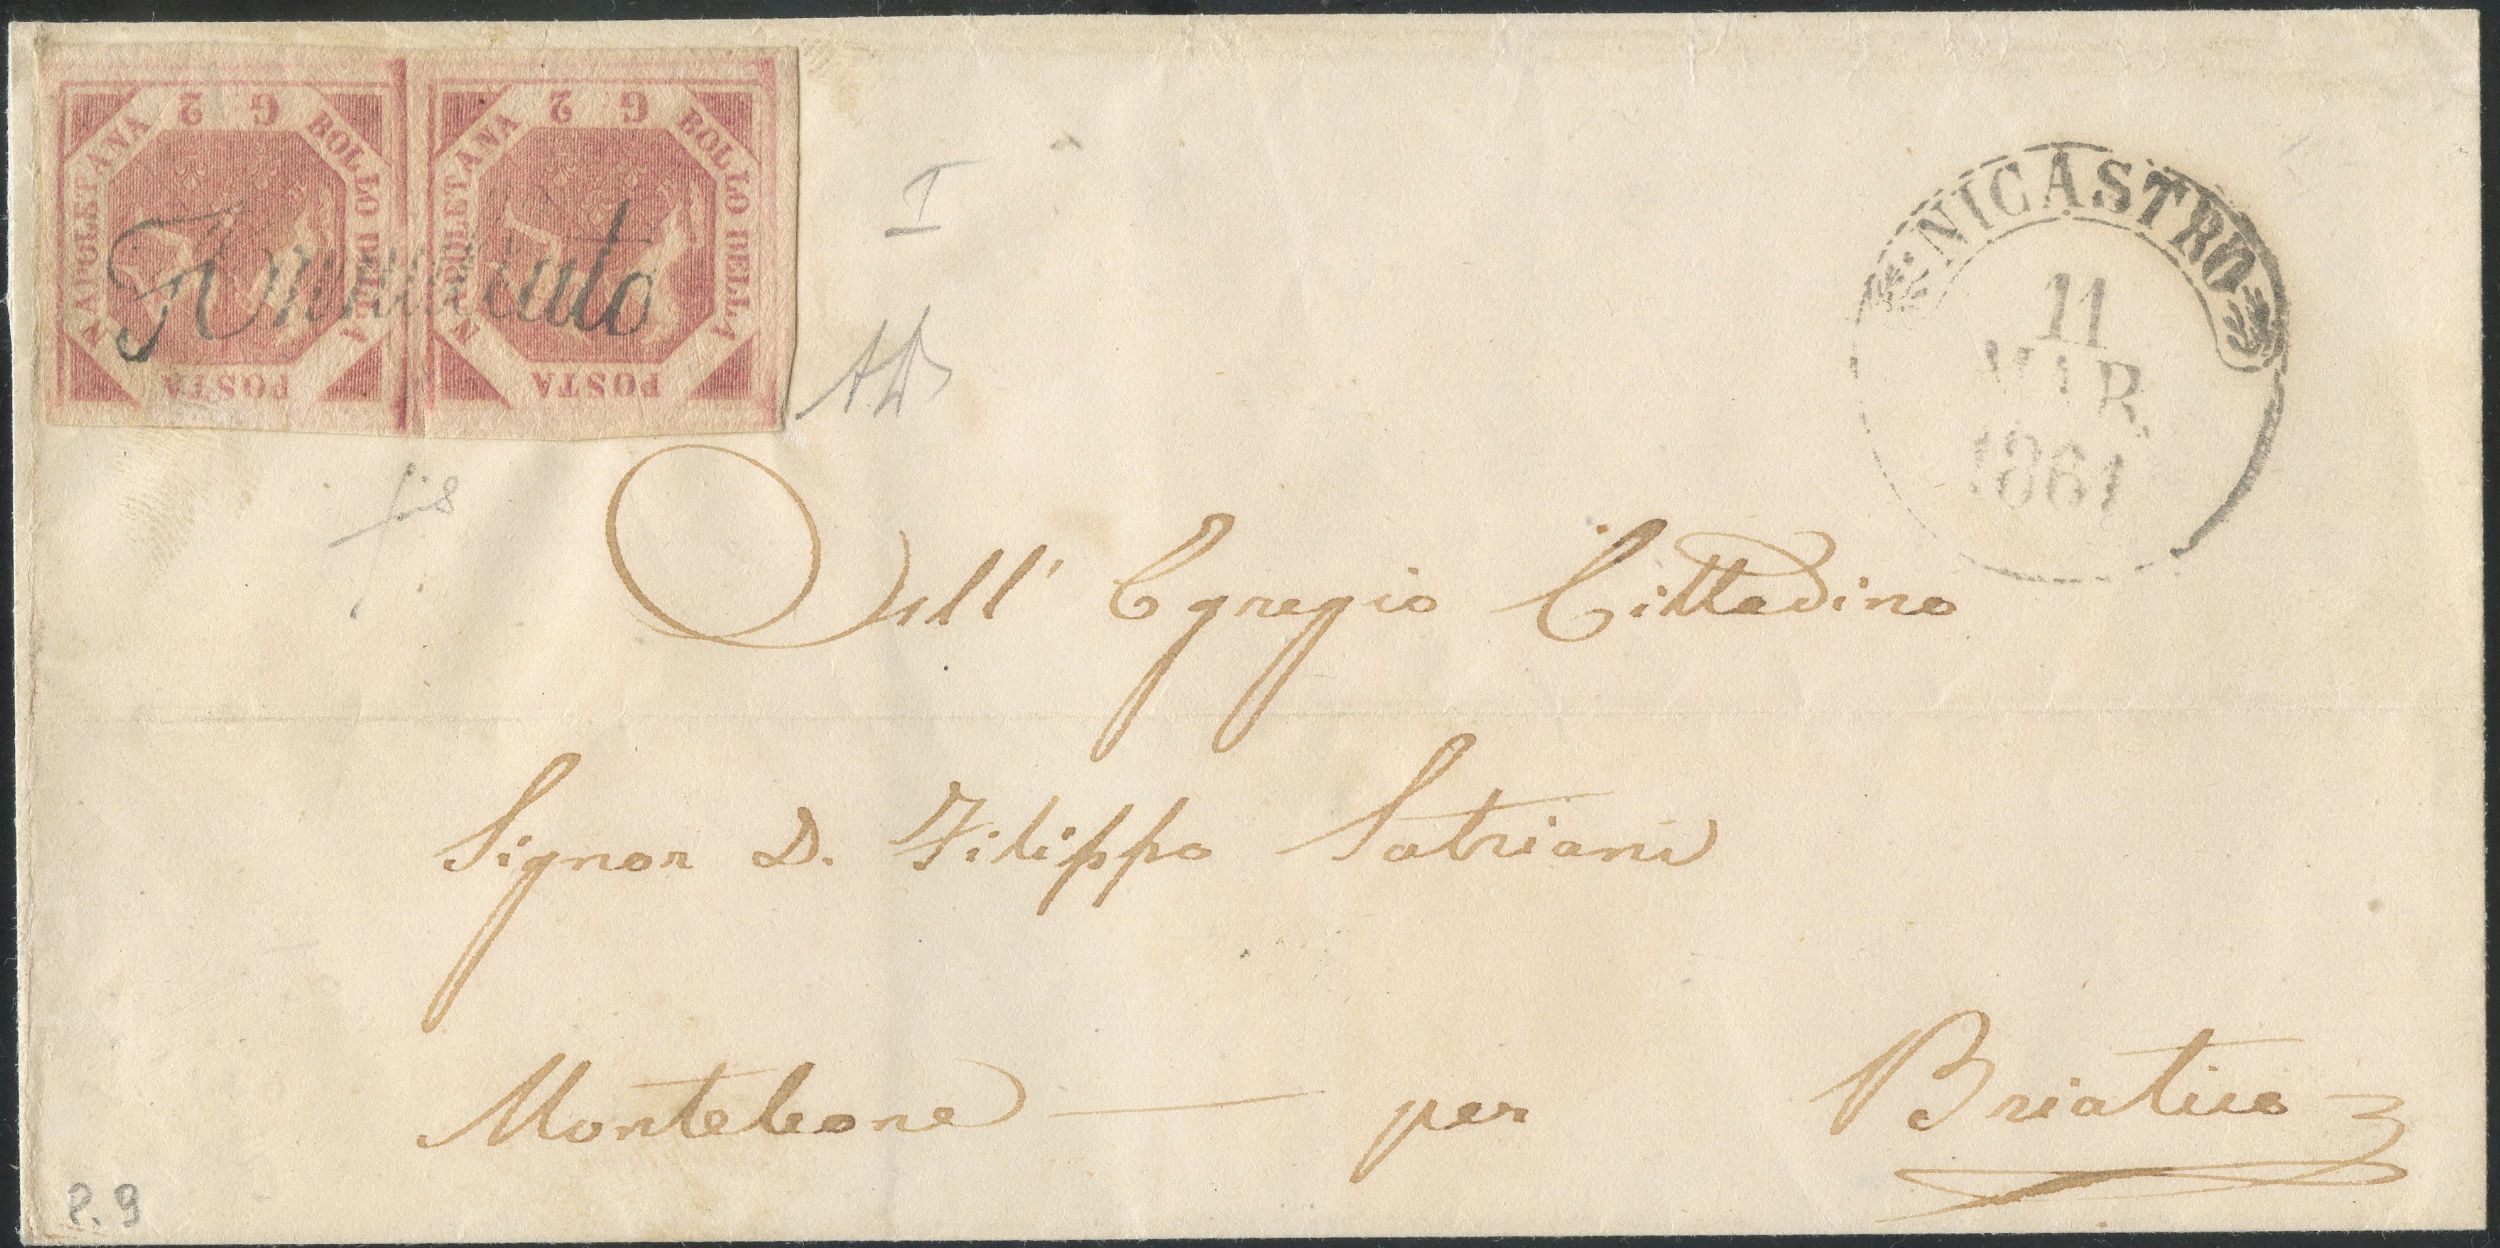 G 2
BOLLO DELLA
POSTA
NAPOLETANA
G 2
BOLLO DELLA
POSTA
NAPOLETANA
Annullato
I
AD
NICASTRO
11
MAR
1861
All' Egregio Cittadino
Signor D. Filippo Satriani
Monteleone — per Briatico
P. 9